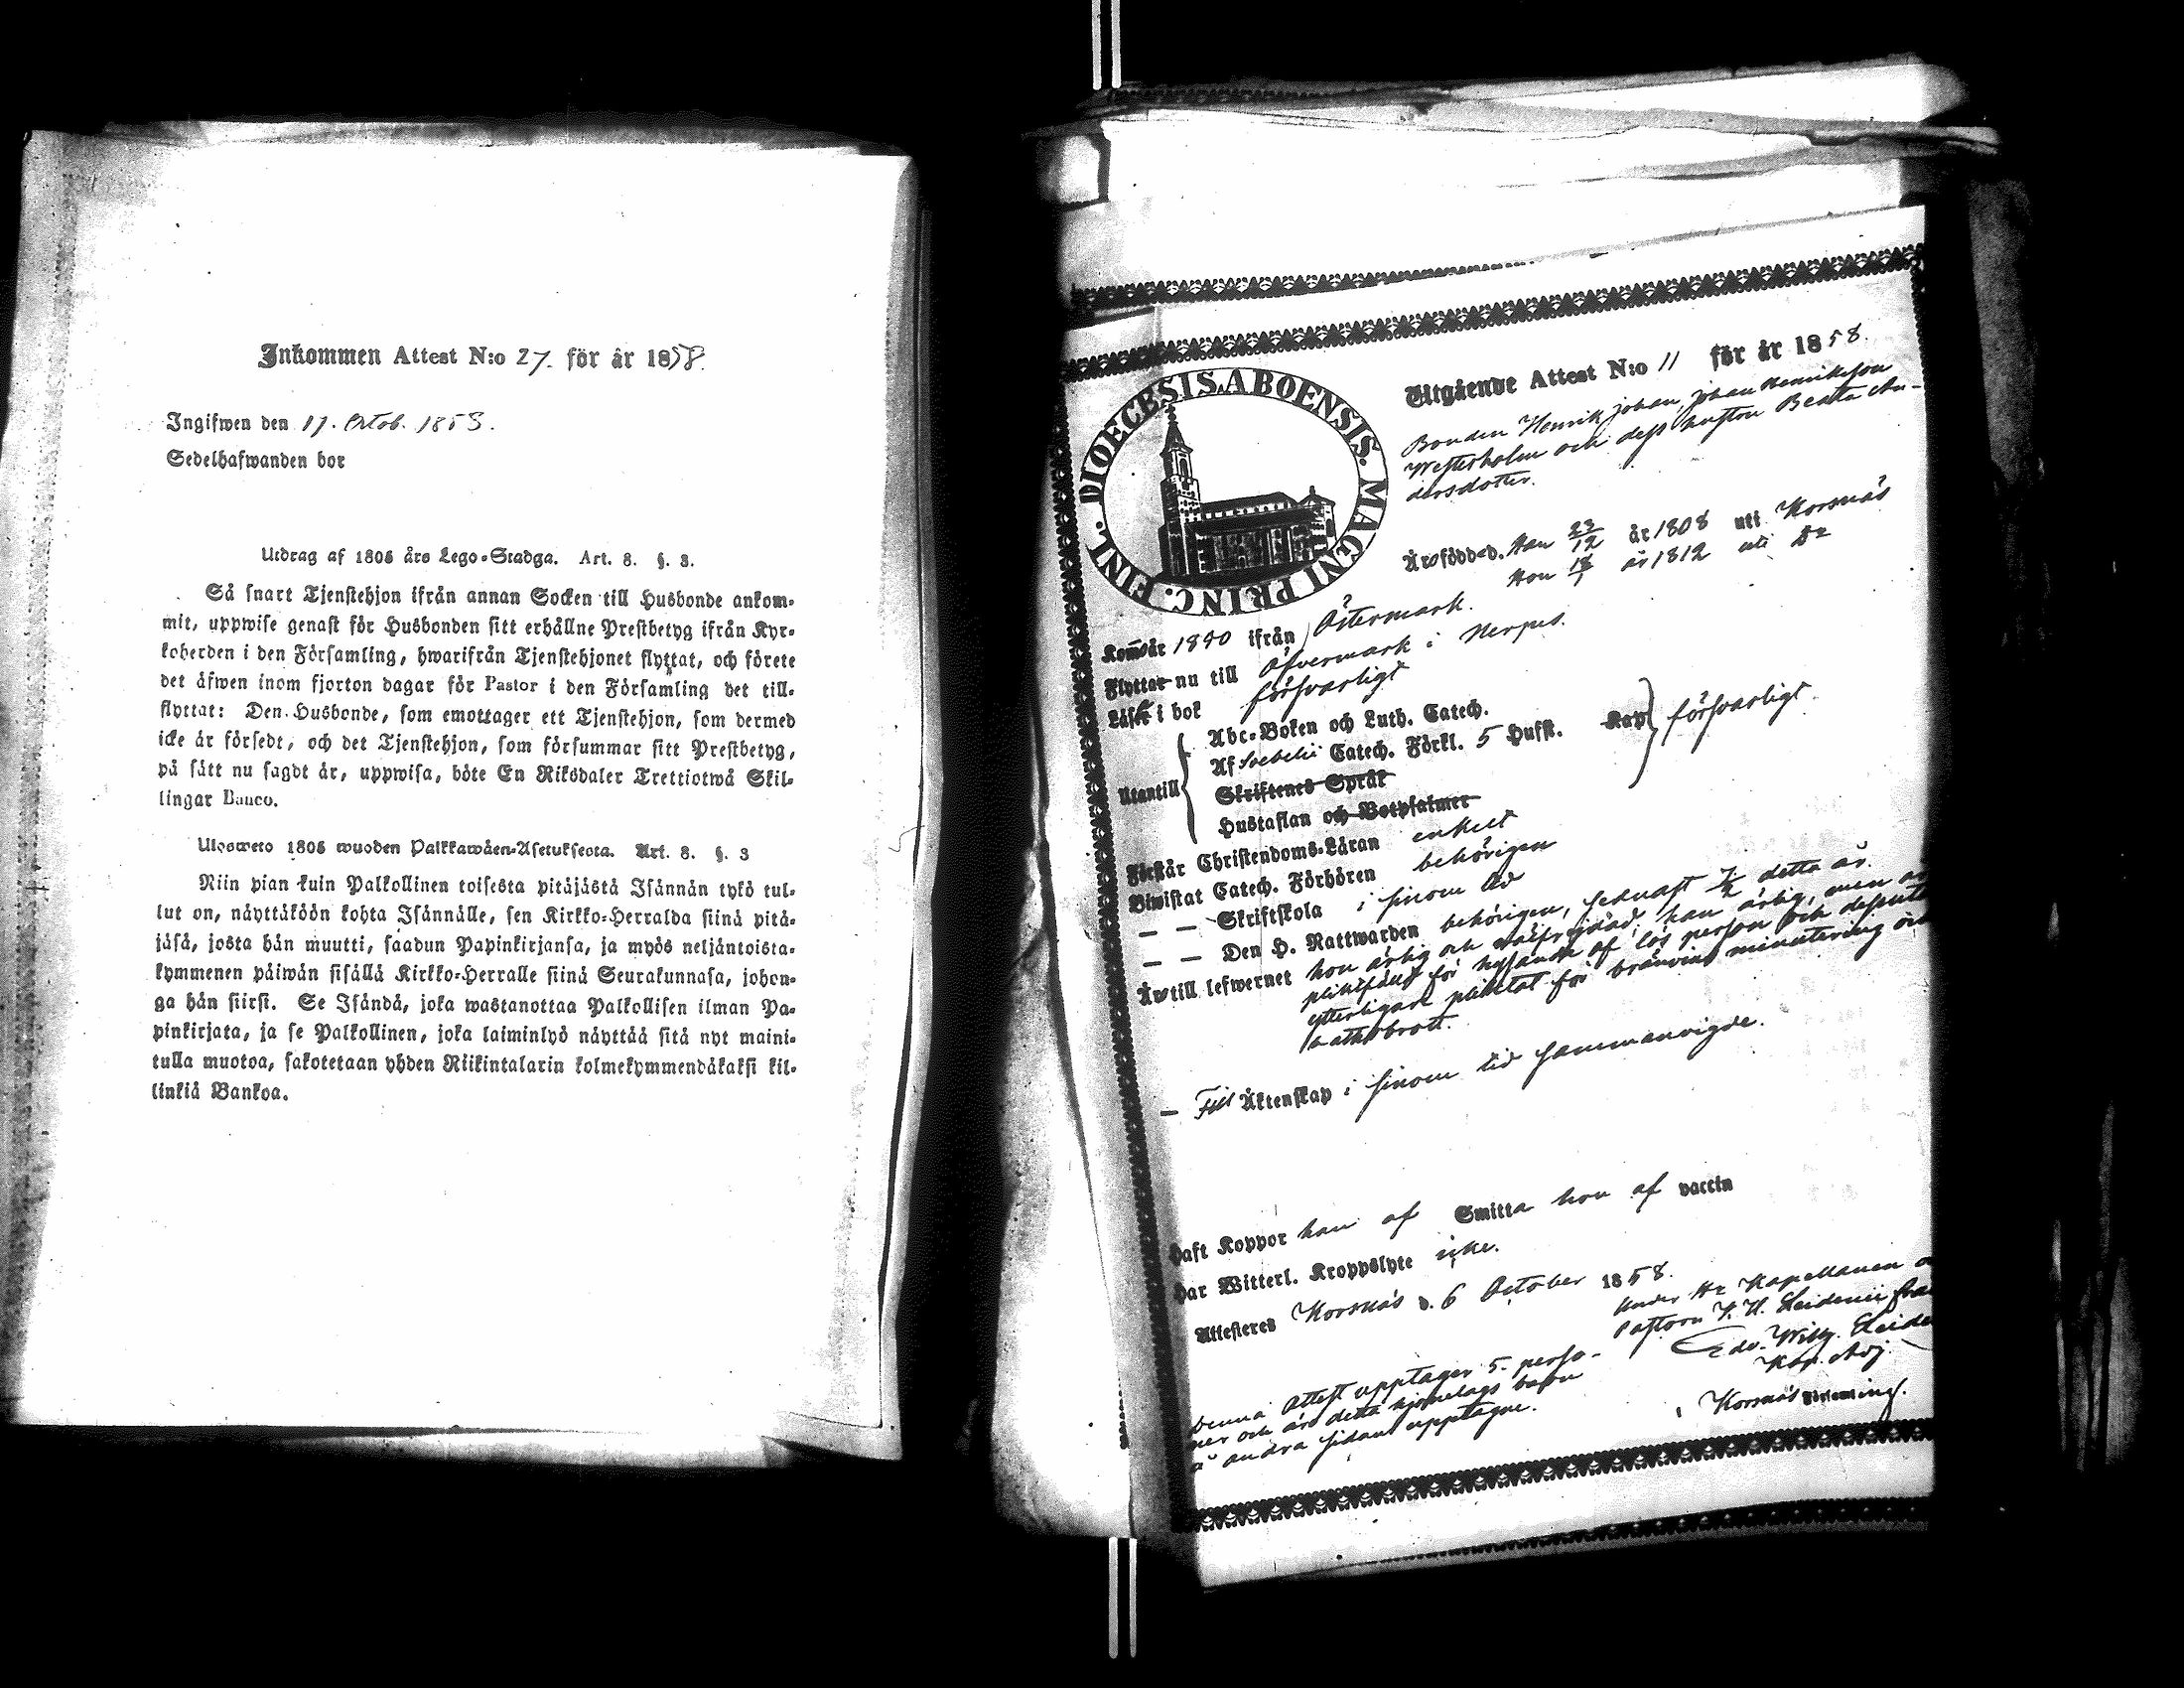 Inkommen Attest N:o 27. för år 1858.
Ingifwen den 17. Octob. 1858.
Sedelhafwanden bor
Utdrag af 1805 års Lego-Stadga. Art. 8. §. 3.
Så snart Tjenstehjon ifrån annan Socken till Husbonde ankom-
mit, uppwise genast för Husbonden sitt erhållne Prestbetyg ifrån Kyr-
koherden i den Församling, hwarifrån Tjenstehjonet flyttat, och förete
det äfwen inom fjorton dagar för Pastor i den Församling det till-
flyttat: Den Husbonde, som emottager ett Tjenstehjon, som dermed
icke är försedt, och det Tjenstehjon, som försummar sitt Prestbetyg,
på sätt nu sagdt är, uppwisa, böte En Riksdaler Trettiotwå Skil-
lingar Banco.
Ulosweto 1805 wuoden Palkkawäen-Asetuksesta. Art. 8. §. 3
Niin pian kuin Palkollinen toisesta pitäjästä Isännän tykö tul-
lut on, näyttäköön kohta Isännälle, sen Kirkko-Herralda siinä pitä-
jäsä, josta hän muutti, saadun Papinkirjansa, ja myös neljäntoista-
kymmenen päiwän sisällä Kirkko-Herralle siinä Seurakunnasa, johon-
ga hän siirst. Se Isändä, joka wastanottaa Palkollisen ilman Pa-
pinkirjata, ja se Palkollinen, joka laiminlyö näyttää sitä nyt maini-
tulla muotoa, sakotetaan yhden Riikintalarin kolmekymmendäkaksi kil-
linkiä Bankoa.
FINL. DIOECESIS. ABOENSIS. MAGNI PRINC.
Utgående Attest N:o 11 för år 1858.
Bonden Henrik Johan Johan Henriksson
Westerholm och dess hustru Beata An-
dersdotter.
Äro född d. Han 23/12 år 1808 uti Korsnäs
Hon 18/1 år 1812 uti Do
Kom år 1840 ifrån Östermark.
Flyttar nu till Öfvermark i Nerpes.
Läser i bok försvarligt
Utantill
Abc-Boken och Luth. Catech.
Af Svebelii Catech. Förkl. 5 Hufst. Kap försvarligt.
Skriftenes Språk
Hustaflan och Botpsalmer
Förstår Christendoms-Läran enkelt
Biwistat Catech. Förhören behörigen
— — Skriftskola i sinom tid
— — Den H. Nattwarden behörigen, sednast 7/2 detta år.
Är till lefwernet hon ärlig och välfrejdad, han ärlig, men
pliktfälld för hysande af lös person och dessutom
ytterligare pliktat för bränvins minutering
— Till Äktenskap i sinom tid sammanvigde.
Haft Koppor han af Smitta hon af vaccin
Har Witterl. Kroppslyte icke.
Attesteres Korsnäs d. 6 October 1858.
Under Hr Kapellanen
Pastorn
Edv. Wilh.
Kap. Adj.
i Korsnäs Församling.
Denna Attest upptager 5. perso-
ner och äro detta hjonelags barn
å andra sidan upptagne.